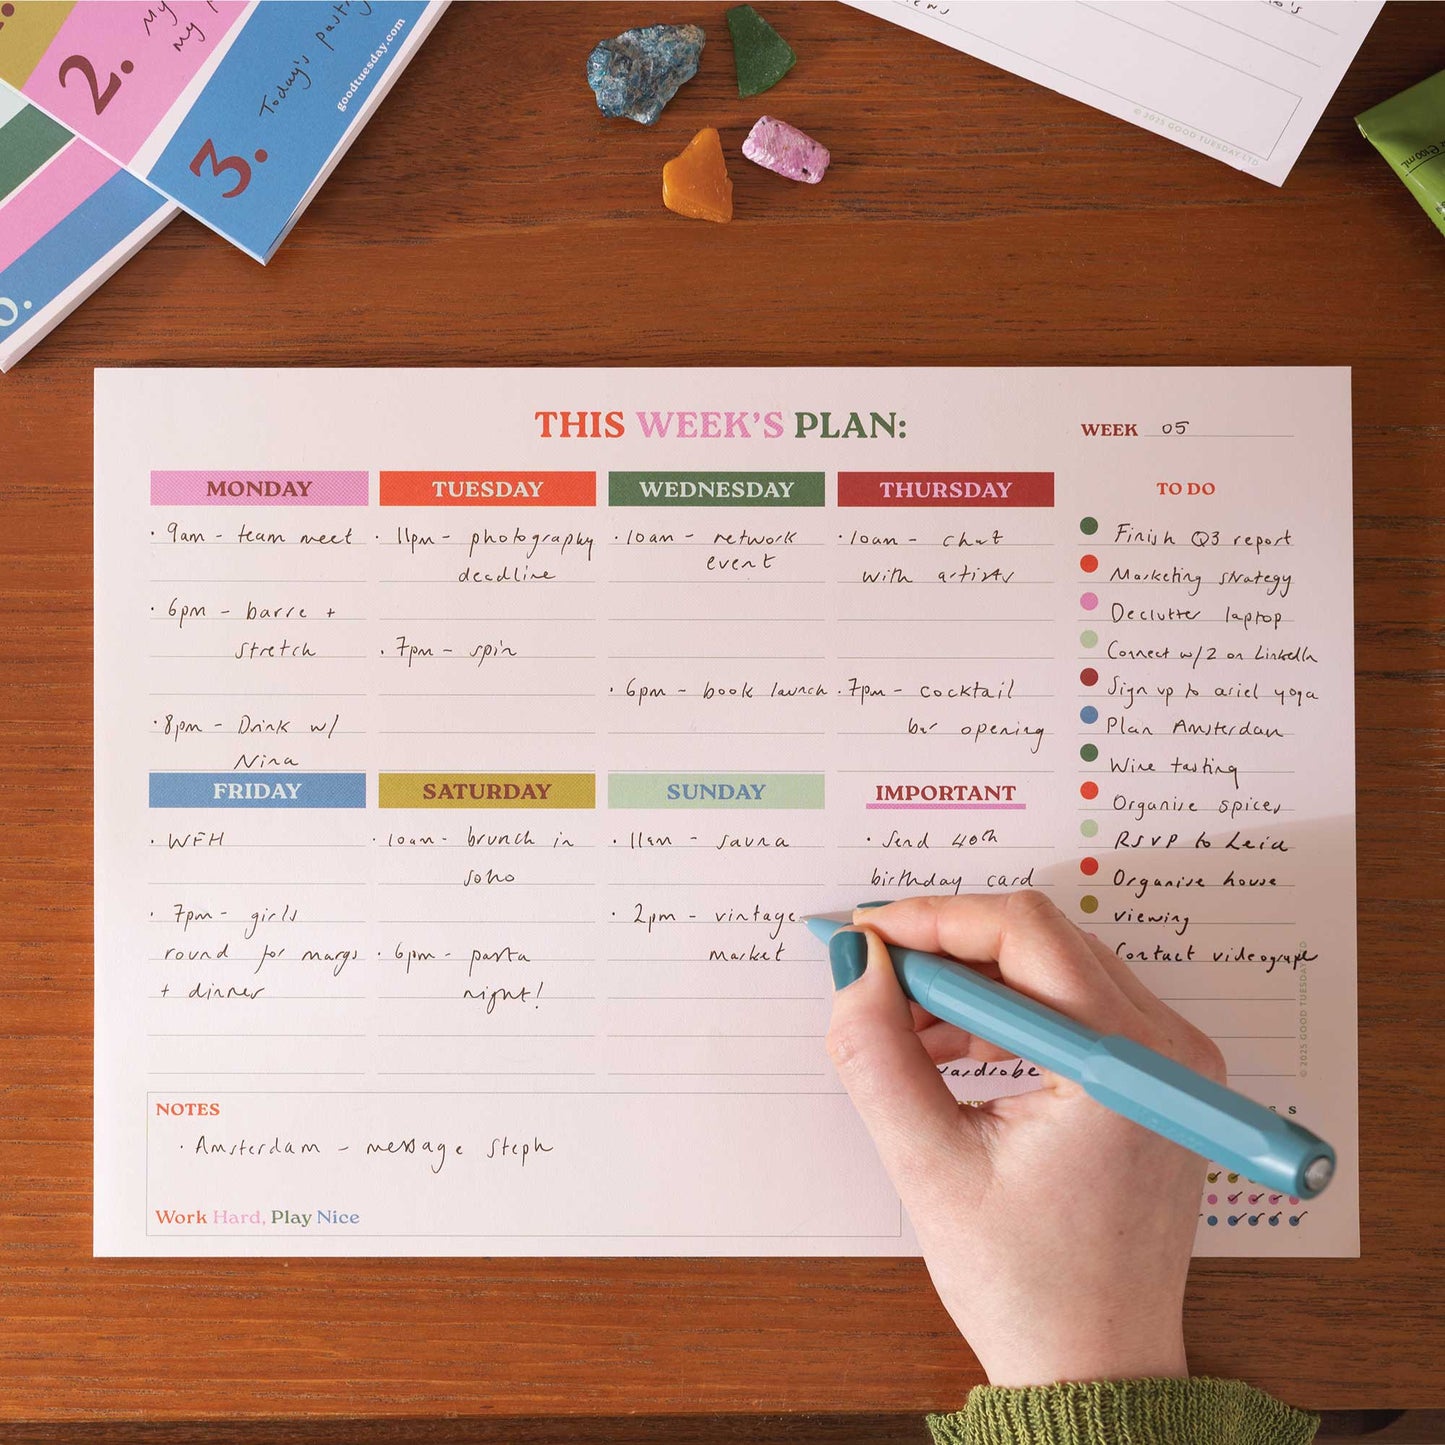 2.
My
my
3.
Today's
goodtuesday.com
© 2025 GOOD TUESDAY LTD
THIS WEEK'S PLAN:
WEEK 05
MONDAY
· 9am - team meet
· 6pm - barre +
stretch
· 8pm - Drink w/
Nina
TUESDAY
· 11pm - photography
deadline
· 7pm - spin
WEDNESDAY
· 10am - network
event
· 6pm - book launch
THURSDAY
· 10am - chat
with artists
· 7pm - cocktail
bar opening
FRIDAY
· WFH
· 7pm - girls
round for margs
+ dinner
SATURDAY
· 10am - brunch in
soho
· 6pm - pasta
night!
SUNDAY
· 11am - sauna
· 2pm - vintage
market
IMPORTANT
· Send 40th
birthday card
wardrobe
TO DO
Finish Q3 report
Marketing strategy
Declutter laptop
Connect w/2 on LinkedIn
Sign up to ariel yoga
Plan Amsterdam
Wine tasting
Organise spices
RSVP to Leia
Organise house
viewing
Contact videographe
S S
NOTES
· Amsterdam - message Steph
Work Hard, Play Nice